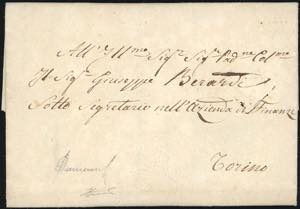 All' Illmo Sigr Sigr Padne Colmo
Il Sigr Giuseppe Berardi
Sotto Segretario nell'Azienda di Finanze
Torino